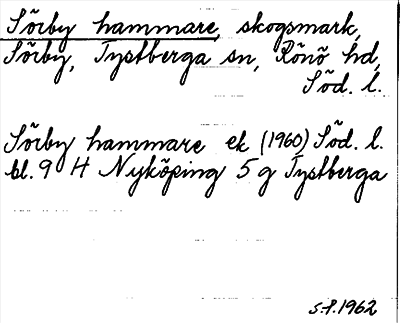 Sörby hammare, skogsmark,
Sörby, Tystberga sn, Rönö hd,
Söd. l.
Sörby hammare ek (1960) Söd. l.
bl. 9 H Nyköping 5 g Tystberga
1962